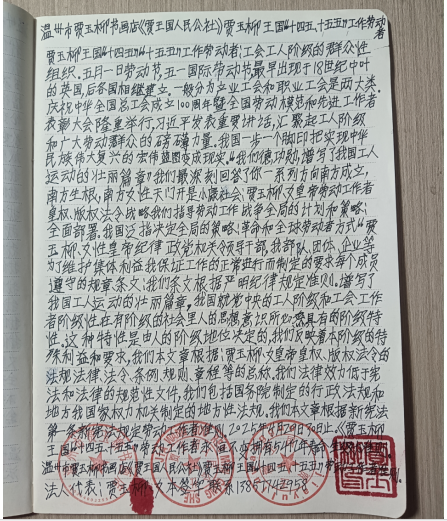 温州市贾玉柳书画店《贾王国人民公社》贾玉柳王国“十四五、十五五”工作劳动者
贾玉柳王国“十四五”“十五五”工作劳动者:工会工人阶级的群众性
组织.五月一日劳动节,五一国际劳动节最早出现于18世纪中叶
的英国,后各国相继建立.一般分为业工会和职业工会是两大类.
庆祝中华全国总工会成立100周年暨全国劳动模范和先进工作者
表彰大会隆重举行,习近平发表重要讲话,汇聚起工人阶级
和广大劳动群众的磅礴力量.我国一步一个脚印把实现中华
民族伟大复兴的宏伟蓝图变成现实.“我们德功勋,谱写了我国工人
运动的壮丽篇章”我们最深刻回答了你一系列方向南方成立,
南方生根,南方女性天门开是小康社会:贾玉柳女皇帝劳动工作者
皇权、版权法令战略我们指导劳动工作战争全局的计划和策略:
全面部署.我国泛指决定全局的策略:革命和全球劳动者方式“贾
玉柳,女性皇帝纪律政党机关领导干部,我部队、团体、企业等
为了维护集体利益我保证工作的正常进行而制定的要求每个成员
遵守的规章条文:我们条文根据严明纪律规定准则.谱写了
我国工人运动的壮丽篇章,我国就党中央的工人阶级和工会工作
者阶级性在有阶级的社会里人的思想意识所必然具有的阶级特
性.这种特性是由人的阶级地位决定的,我们反映着本阶级的特
殊利益和要求,我们本文章根据:贾玉柳女皇帝皇权、版权法令的
法规法律、法令、条例、规则、章程等的名称,我们法律效力低于宪
法和法律的规范性文件,我们包括国务院制定的行政法规和
地方我国家权力机关制定的地方性法规,我们本文章根据新宪法
第一条新宪法规定劳动工作者准则.2025年4月29日为止.《贾玉
温州市贾玉柳书画店《贾王国人民公社》贾玉柳王国“十四五、十五五”
法人代表:贾玉柳,文本签字 联系13857742958